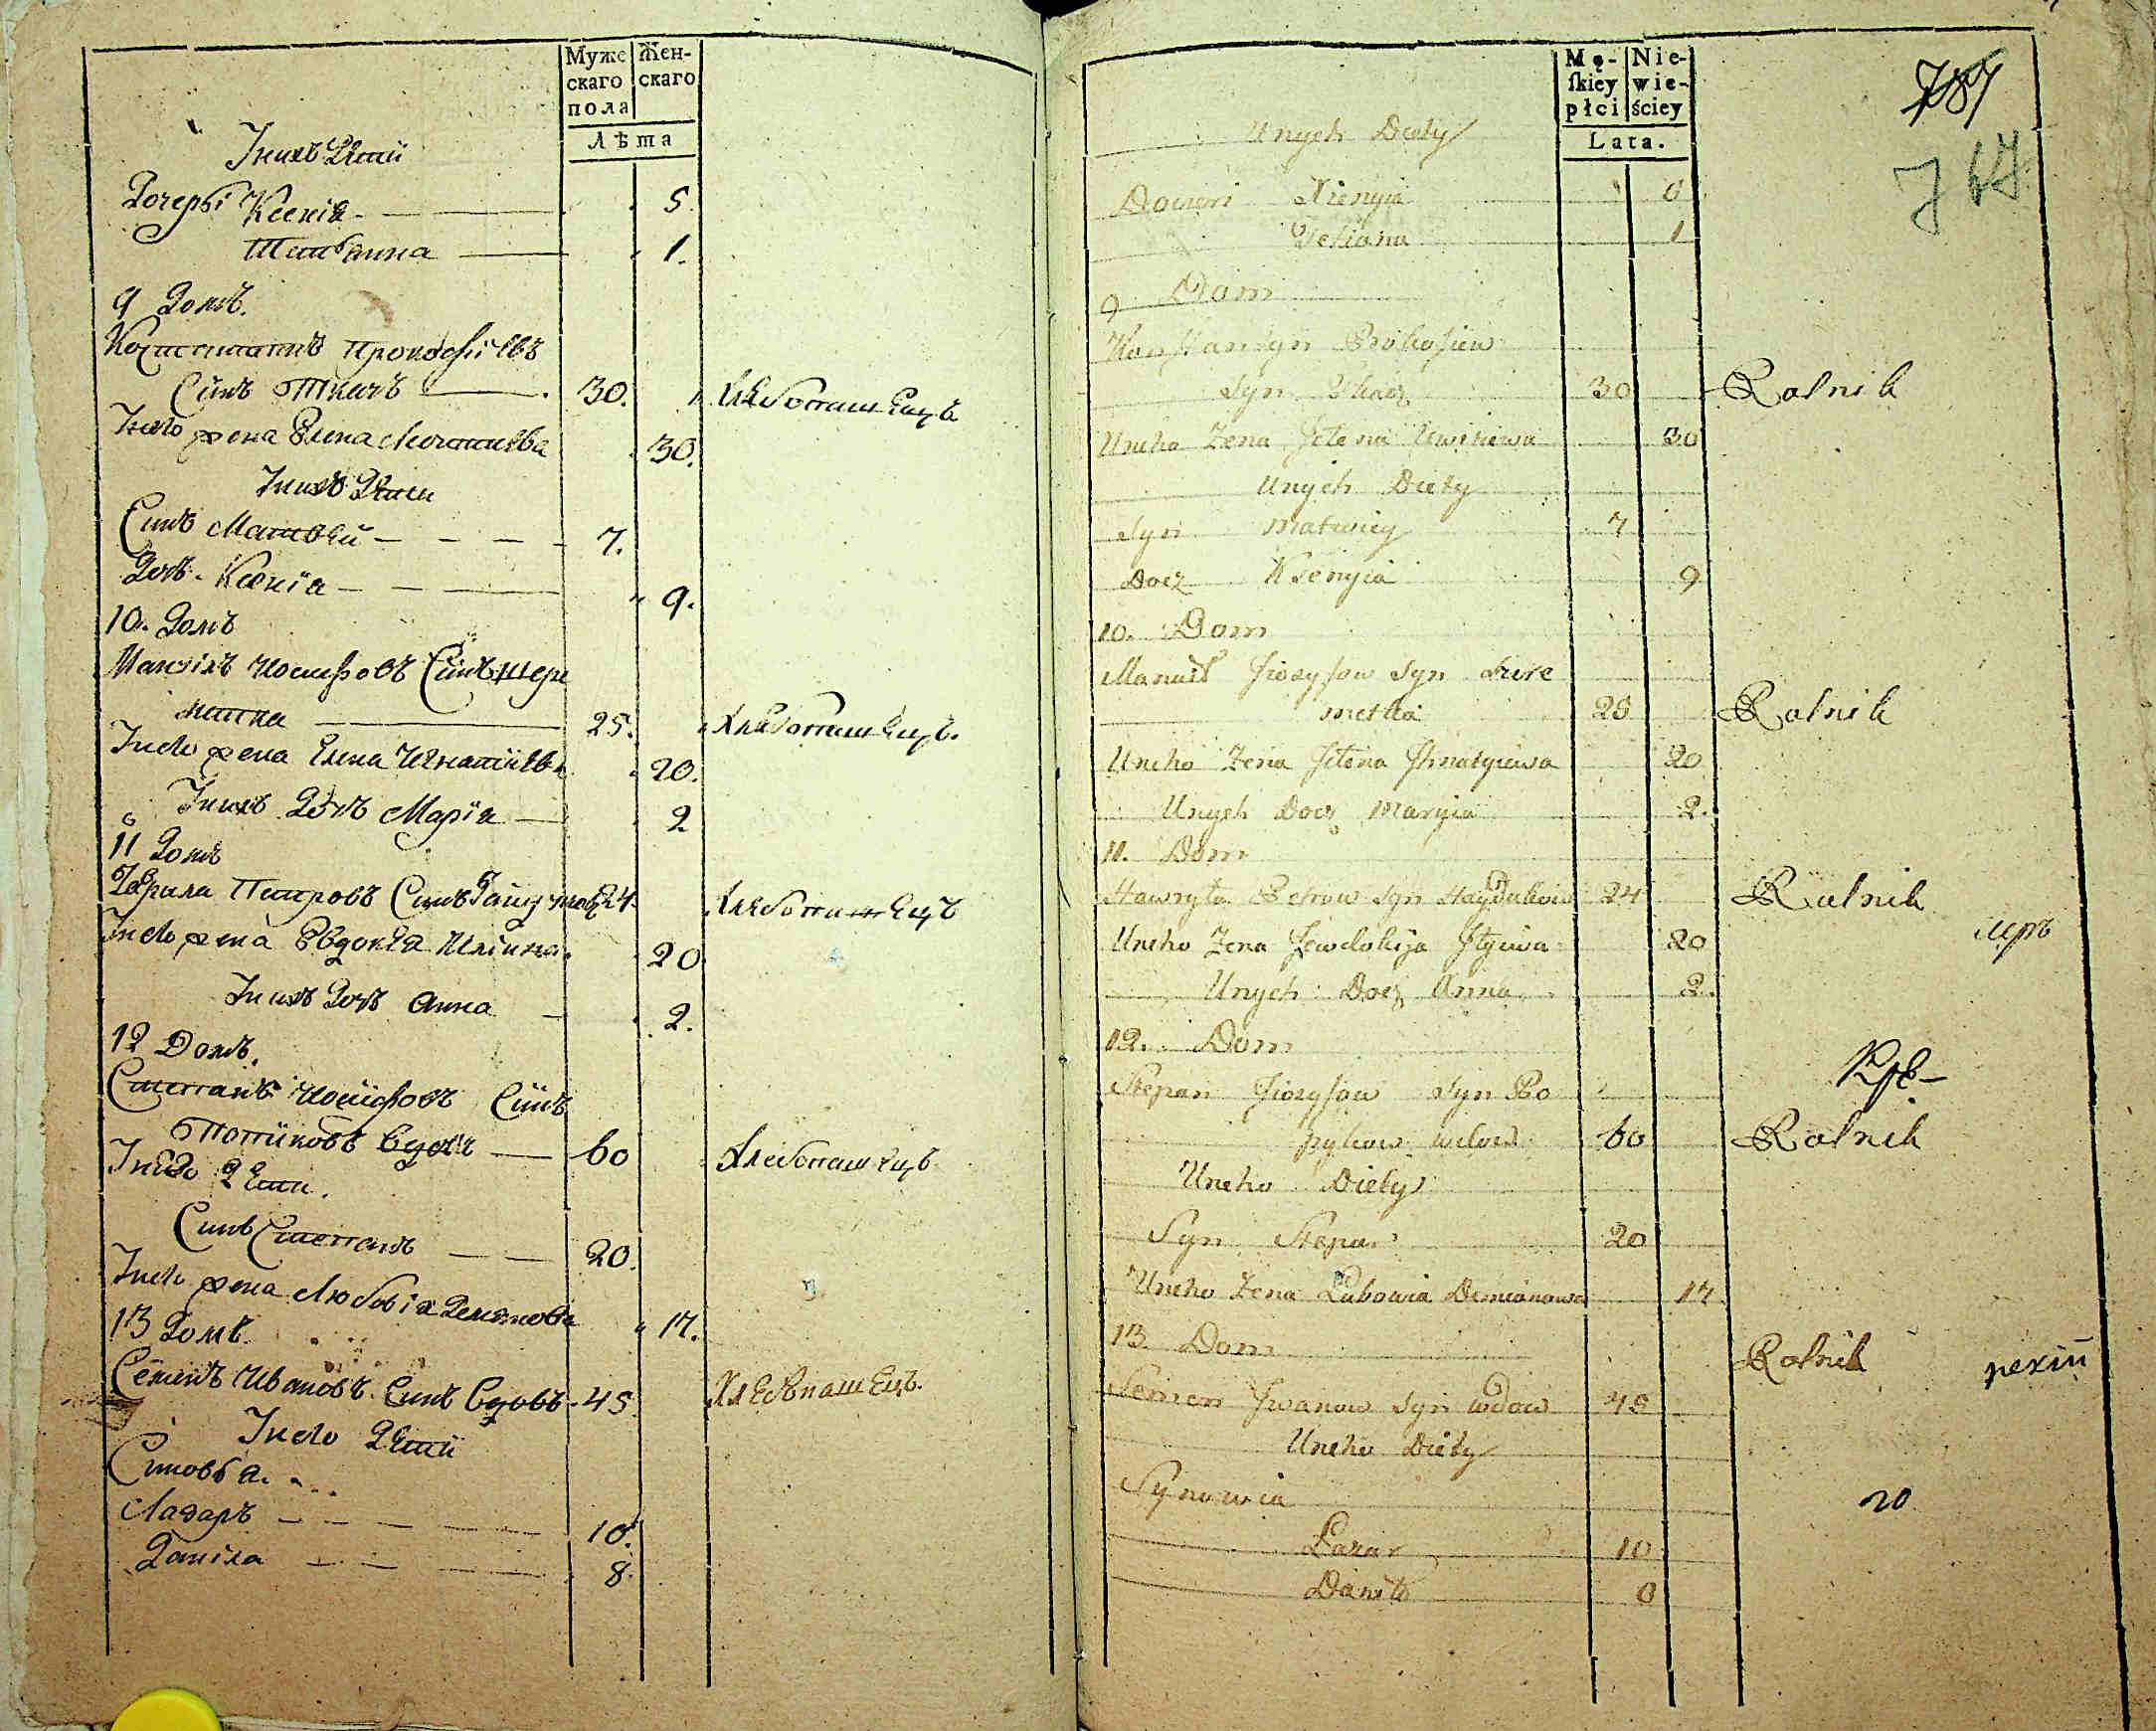 Муже
скаго
пола
Жен-
скаго
Лѣта
Унихъ Дѣти
Дочерѣ Ксенія 5.
Татіанна 1.
9 Домъ.
Константинъ Прокофіевъ
Синъ Ткачъ 30. Хлѣбопашецъ
Унего жена Елена 30.
Унихъ Дѣти
Синъ Матвѣй 7.
Дочъ Ксенія 9.
10. Домъ
Иосифовъ Синъ Шере
метка 25. Хлѣбопашецъ.
Унего жена Елена Игнатіева 20.
Унихъ Дочъ Марія 2
11 Домъ
Гаврила Петровъ Синъ 24. Хлѣбопашецъ
Унего жена Евдокѣя Иліина 20.
Унихъ Дочъ Анна 2.
12 Домъ.
Степанъ Иосифовъ Синъ
Попиковъ Вдовъ 60 Хлебопашецъ
Унего Дѣти.
Синъ Степанъ 20.
Унего жена Любовія Демянова 17.
13 Домъ.
Семенъ Ивановъ Синъ Вдовъ 45. Хлебопашецъ.
Унего Дѣти
Синовѣя.
Лазаръ 10.
Даніла 8.
Mę-
ſkiey
płci
Nie-
wie-
ściey
Lata.
787
Unych Diety
Doczeri Xienyia
Tetiana 1
9 Dom
Konstantyn Prokofiew
Syn Tkacz 30 Rolnik
Uneho Zena Jelena 30
Unych Diety
Syn Matwiey 7
Docz Ksenyia 9
10. Dom
Manuił Jiozyfow Syn Szere
metka 25 Rolnik
Uneho Zena Jelena Ihnatyiewa 20
Unych Docz Maryia 2.
11. Dom
Hawryła Petrow Syn Haydukow 24 Rolnik
Uneho Zena Jewdokija Ilyiwa 20
Unych Docz Anna 2.
12. Dom
Stepan Jiozyfow Syn Po
pykow wdow 60 Rolnik
Uneho Diety
Syn Stepan 20
Uneho Zena Lubowia Demianowa 17
13 Dom Rolnik
Semen Jwanow Syn Wdow 45
Uneho Diety
Synowia
Łazar 10
Danił
20